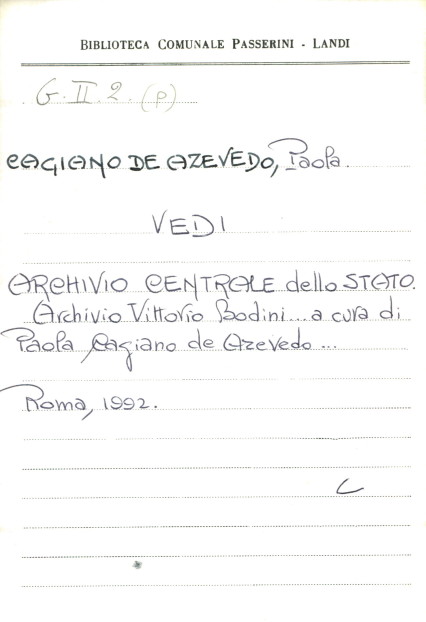 BIBLIOTECA COMUNALE PASSERINI - LANDI
G.II.2.(p)
CAGIANO DE AZEVEDO, Paola.
VEDI
ARCHIVIO CENTRALE dello STATO.
Archivio Vittorio Bodini... a cura di
Paola Cagiano de Azevedo...
Roma, 1992.
C